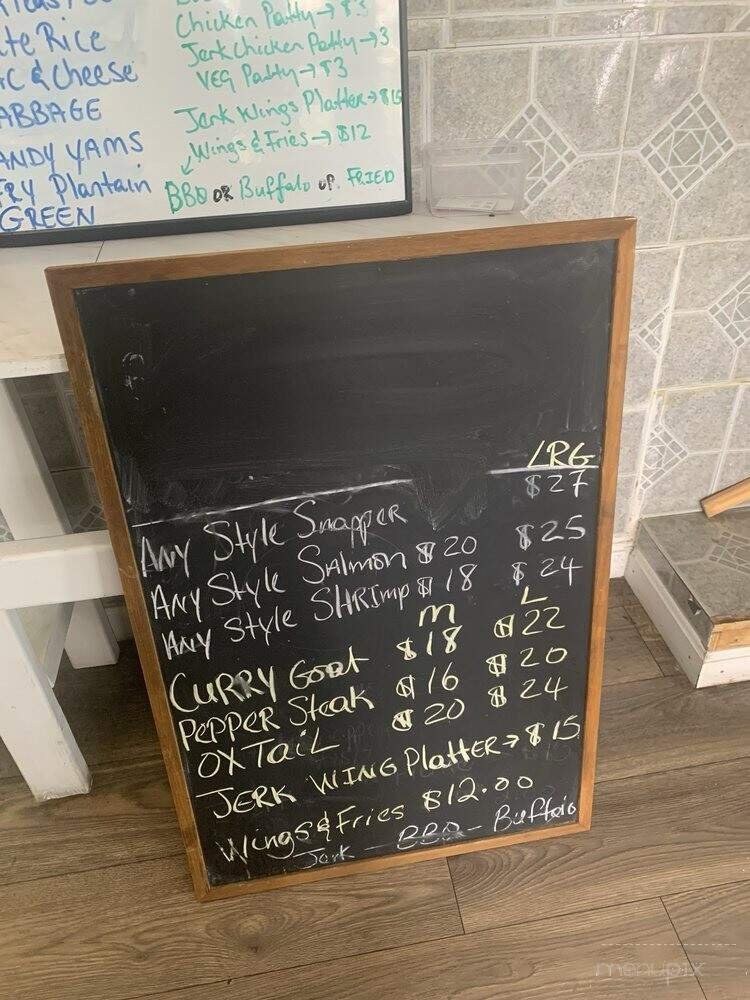 Rice
& Cheese
YAMS
Plantain
GREEN
Chicken Patty → $3
Jerk Chicken Patty → 3
VEG Patty → $3
Jerk Wings Platter →
Wings & Fries → $12
BBQ OR Buffalo OR FRIED
LRG
ANY Style Snapper $27
ANY Style SAlmon $20 $25
ANY Style SHRImp $18 $24
m L
CURRY Goat $18 $22
PEPPER Steak $16 $20
OXTaiL $20 $24
JERK WING Platter → $15
Wings & Fries $12.00
Jerk - BBQ - Buffalo
menupix